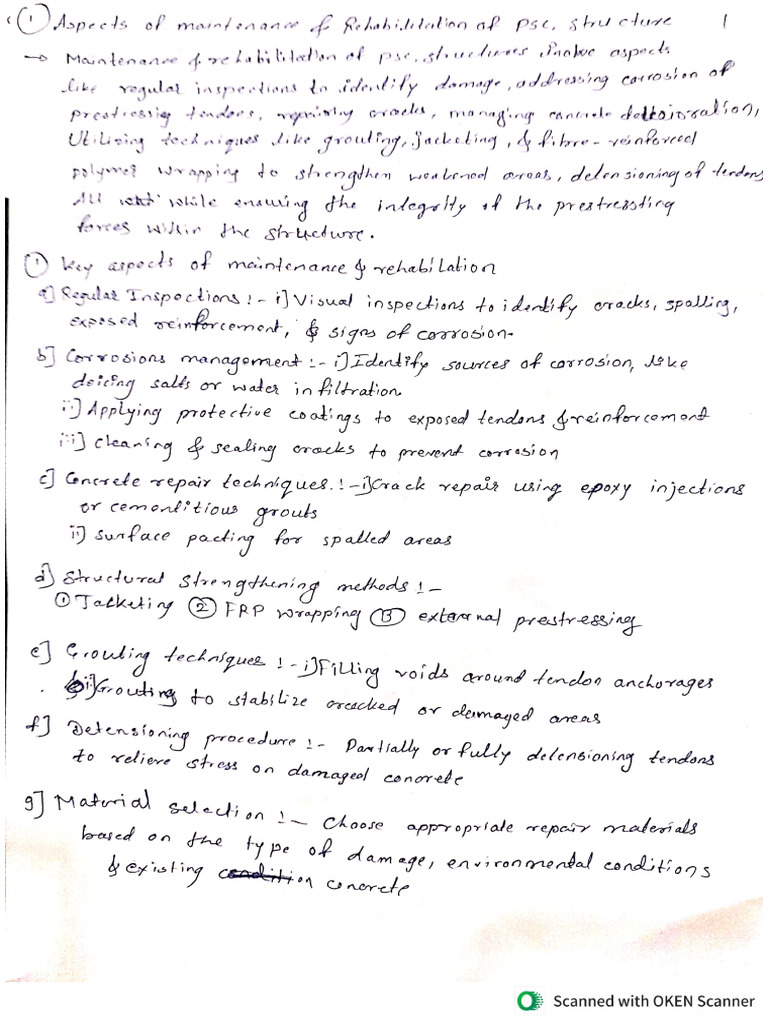 ① Aspects of maintenance & Rehabilitation of psc. structure 1
→ Maintenance & rehabilitation of psc. structures inolve aspects
like regular inspections to identify damage, addressing corrosion of
prestressig tendons, repairing cracks, managing concrete detoriration,
Utilizing techniques like grouting, jacketing, & fibre-reinforced
polymer wrapping to strengthen weakened areas, detensioning of tendons
All while ensuring the integrity of the prestressting
forces within the structure.
① Key aspects of maintenance & rehabilation
a] Regular Inspections :- i] Visual inspections to identify cracks, spalling,
exposed reinforcement, & signs of corrosion.
b] Corrosions management :- i] Identify sources of corrosion, like
deicing salts or water infiltration.
ii] Applying protective coatings to exposed tendons & reinforcement
iii] cleaning & sealing cracks to prevent corrosion
c] Concrete repair techniques :- i] Crack repair using epoxy injections
or cementitious grouts
ii] surface pacting for spalled areas
d] Structural strengthening methods :-
① Jacketing ② FRP wrapping ③ external prestressing
e] Grouting techniques :- i] Filling voids around tendon anchorages
ii] Grouting to stabilize cracked or damaged areas
f] Detensioning procedure :- Partially or fully detensioning tendons
to relieve stress on damaged concrete
g] Material selection :- Choose appropriate repair materials
based on the type of damage, environmental conditions
& existing concrete
Scanned with OKEN Scanner